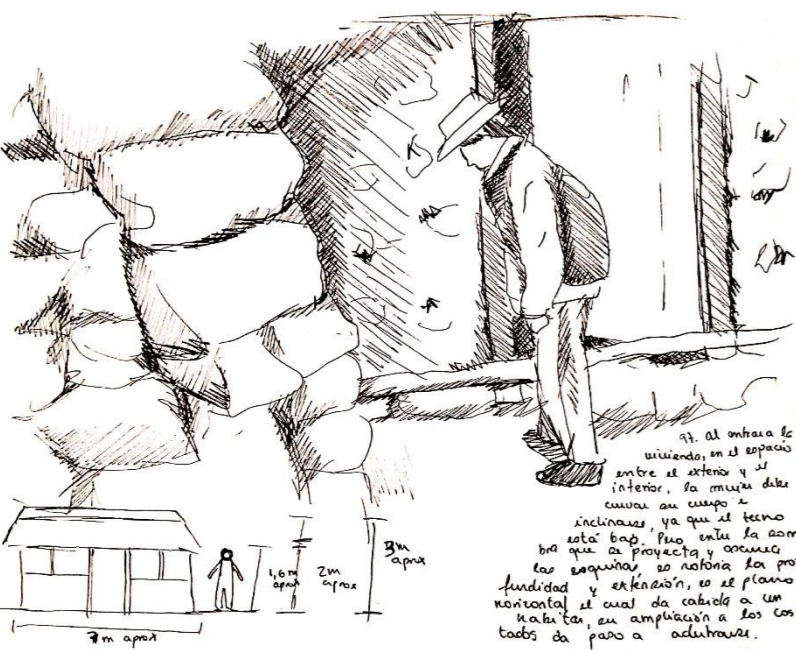 97. Al entrar a la
vivienda, en el espacio
entre el exterior y el
interior, la mujer debe
curvar su cuerpo e
inclinarse, ya que el techo
está bajo. Pero entre la som
bra que se proyecta y oscurece
las esquinas, es notoria la pro
fundidad y extensión, es el plano
horizontal el cual da cabida a un
habitar, su ampliación a los cos
tados da paso a adentrarse.
1,6m
aprox
2m
aprox
3m
aprox
7m aprox